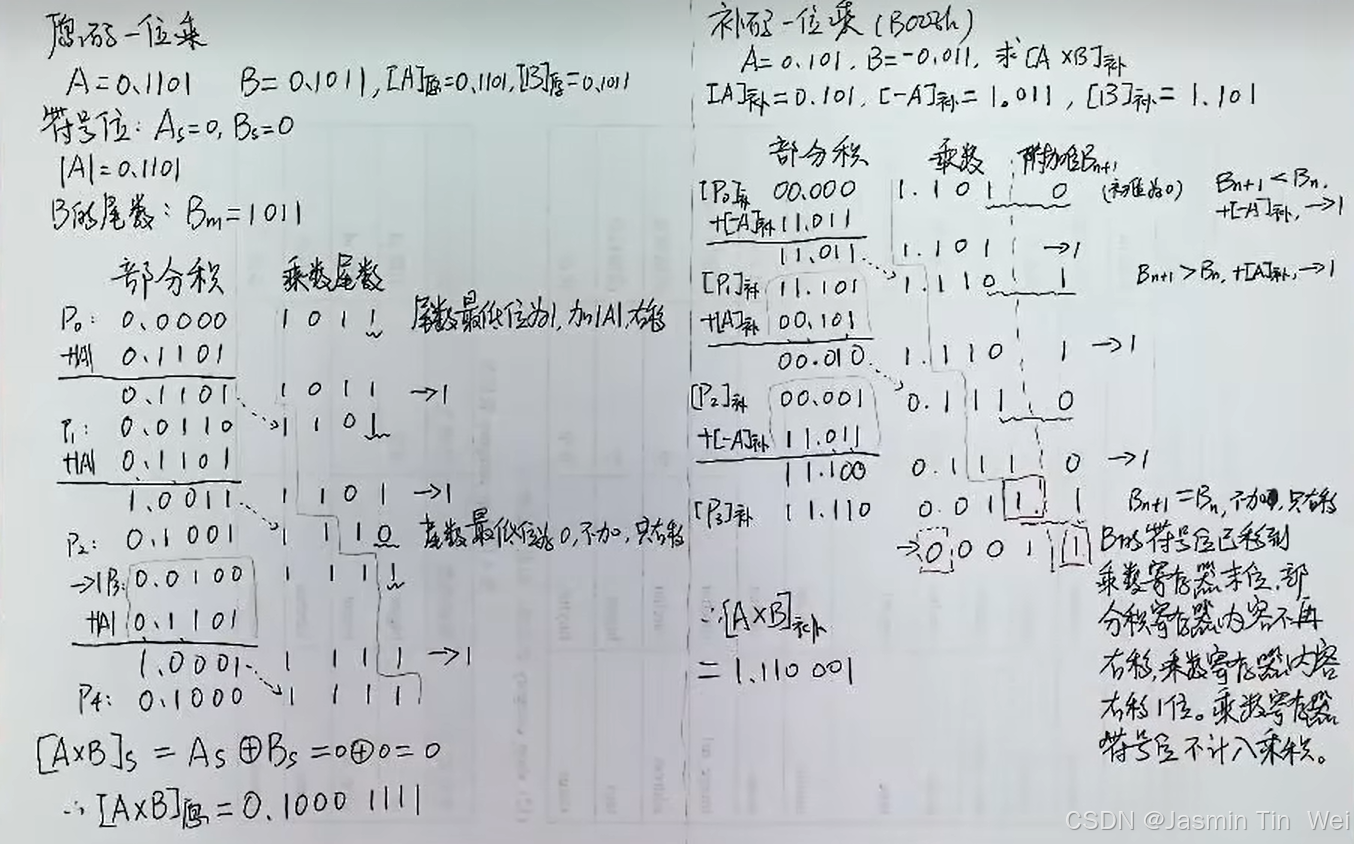 原码一位乘
A=0.1101 B=0.1011, [A]原=0.1101, [B]原=0.1011
符号位: As=0, Bs=0
|A|=0.1101
B的尾数: Bm=1011
部分积 乘数尾数
P0: 0.0000 1 0 1 1 尾数最低位为1, 加|A|, 右移
+|A| 0.1101
0.1101 1 0 1 1 →1
P1: 0.0110 1 1 0 1
+|A| 0.1101
1.0011 1 1 0 1 →1
P2: 0.1001 1 1 1 0 尾数最低位为0, 不加, 只右移
→1 P3: 0.0100 1 1 1 1
+|A| 0.1101
1.0001 1 1 1 1 →1
P4: 0.1000 1 1 1 1
[A×B]s = As⊕Bs=0⊕0=0
∴[A×B]原=0.1000 1111
补码一位乘(Booth)
A=0.101, B=-0.011, 求[A×B]补
[A]补=0.101, [-A]补=1.011, [B]补=1.101
部分积 乘数 附加位Bn+1
[P0]补 00.000 1.101 0 (初值为0) Bn+1<Bn,
+[-A]补 11.011 +[-A]补, →1
11.011 1.101 →1
[P1]补 11.101 1.110 1 Bn+1>Bn, +[A]补, →1
+[A]补 00.101
00.010 1.110 1 →1
[P2]补 00.001 0.111 0
+[-A]补 11.011
11.100 0.111 0 →1
[P3]补 11.110 0.011 1 Bn+1=Bn, 不加, 只右移
→0 0 0 1 1 B的符号位已移到
乘数寄存器末位, 部
分积寄存器内容不再
右移, 乘数寄存器内容
右移1位。乘数寄存器
符号位不计入乘积。
∴[A×B]补
=1.110 001
CSDN @Jasmin Tin Wei